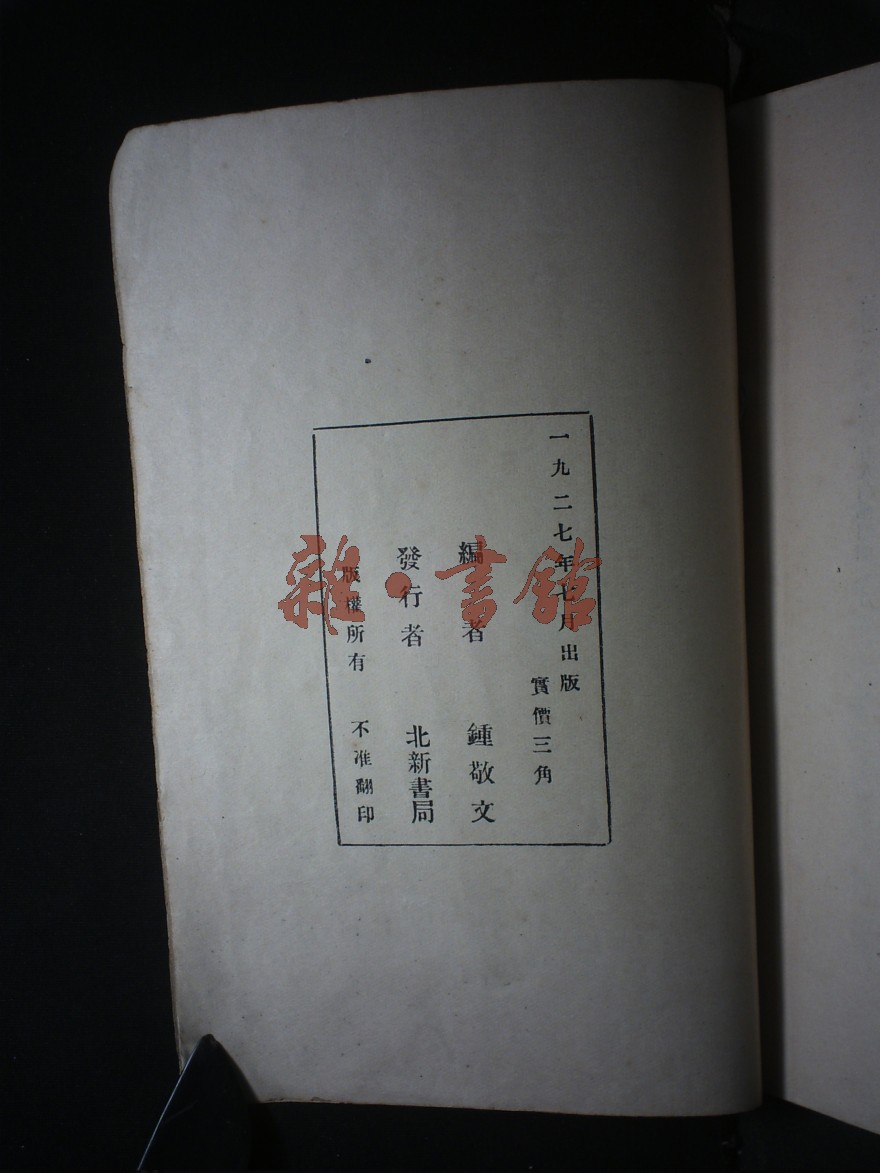 一九二七年七月出版
實價三角
編者 鍾敬文
發行者 北新書局
版權所有 不准翻印
雜·書館